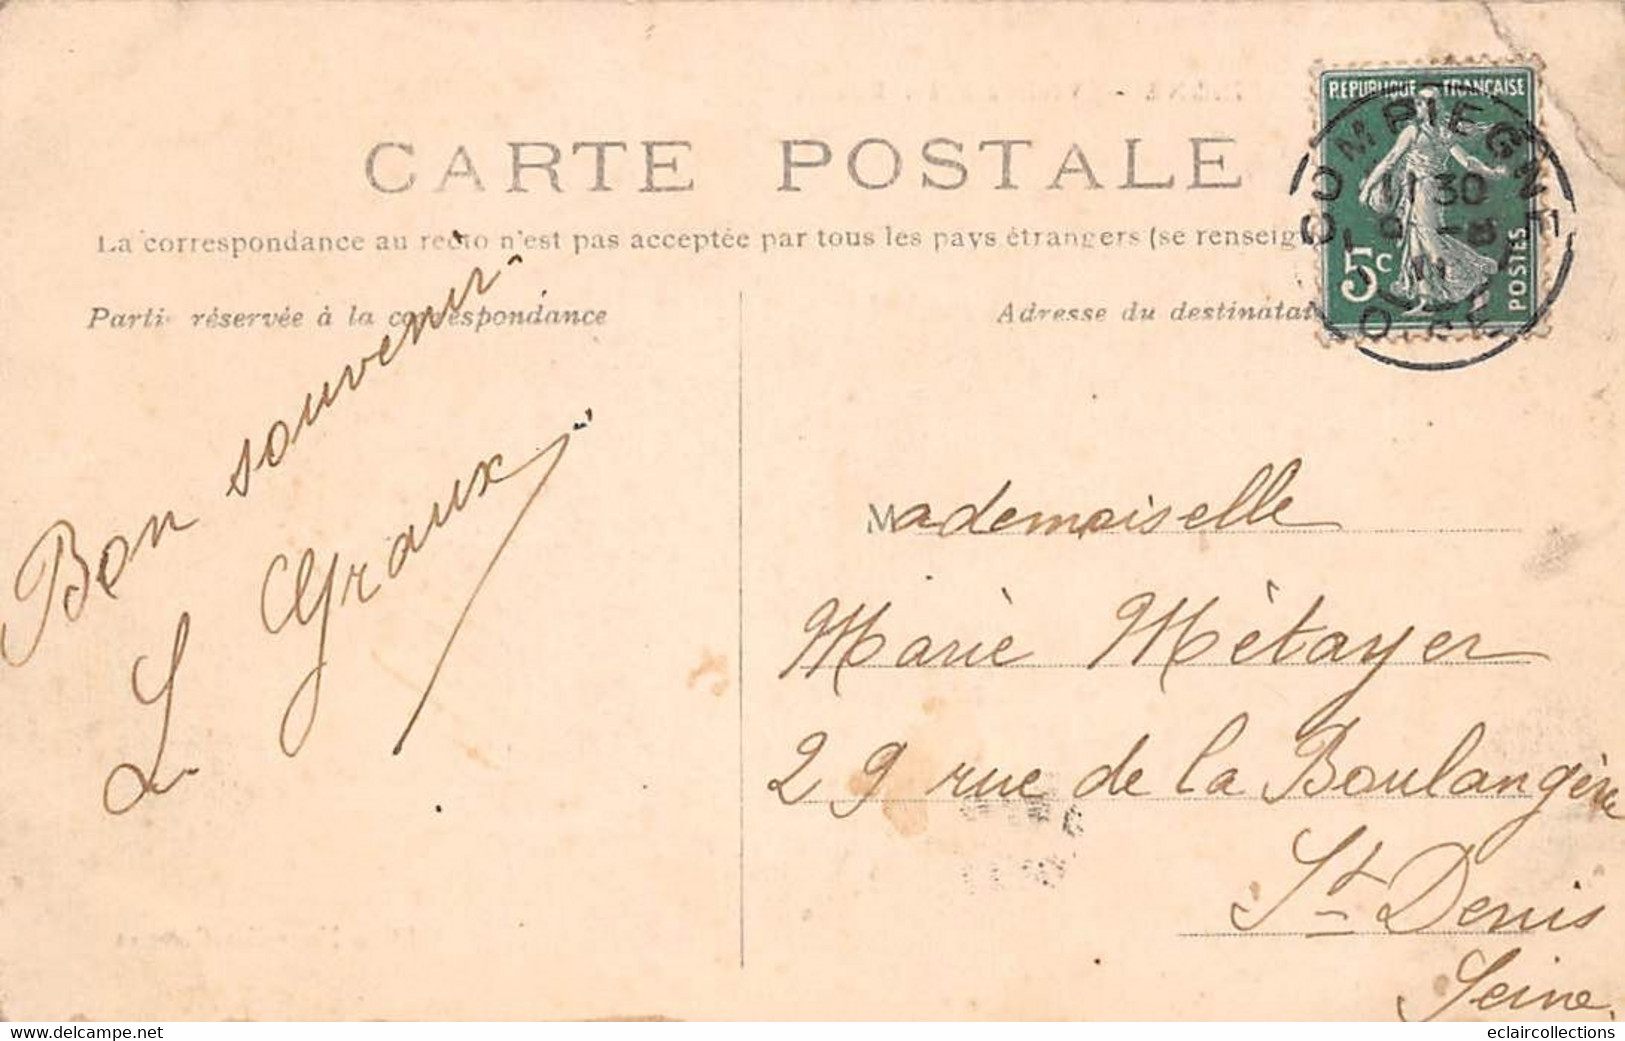 CARTE POSTALE
La correspondance au recto n'est pas acceptée par tous les pays étrangers (se renseig
Partie réservée à la correspondance
Adresse du destinatai
REPUBLIQUE FRANÇAISE
5c
POSTES
COMPIEGNE
11 30
OISE
Bon souvenir
L Graux
Mademoiselle
Marie Métayer
29 rue de la Boulangerie
St Denis
Seine.
eclaircollections